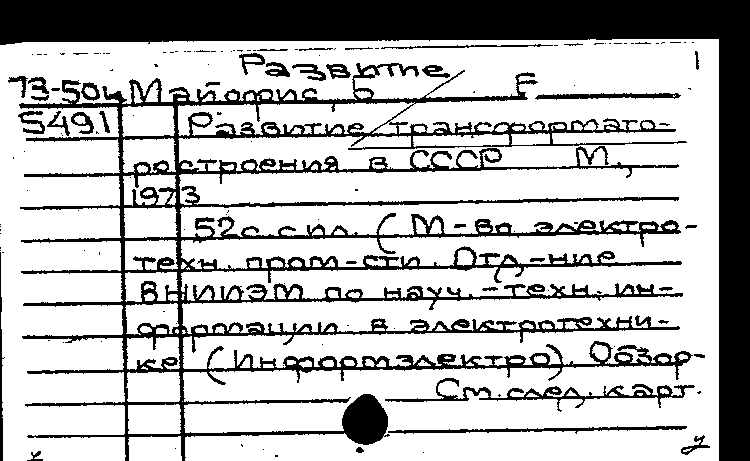 Развитие
73-504 Майорис, Б Е
5491 Развитие трансформато-
ростроения в СССР М.,
1973
52с. с ил. (М-во электро-
техн. пром-сти. Отд-ние
ВНИИЭМ по науч.-техн. ин-
формации в электротехни-
ке (Информэлектро). Обзор-
См. след. карт.